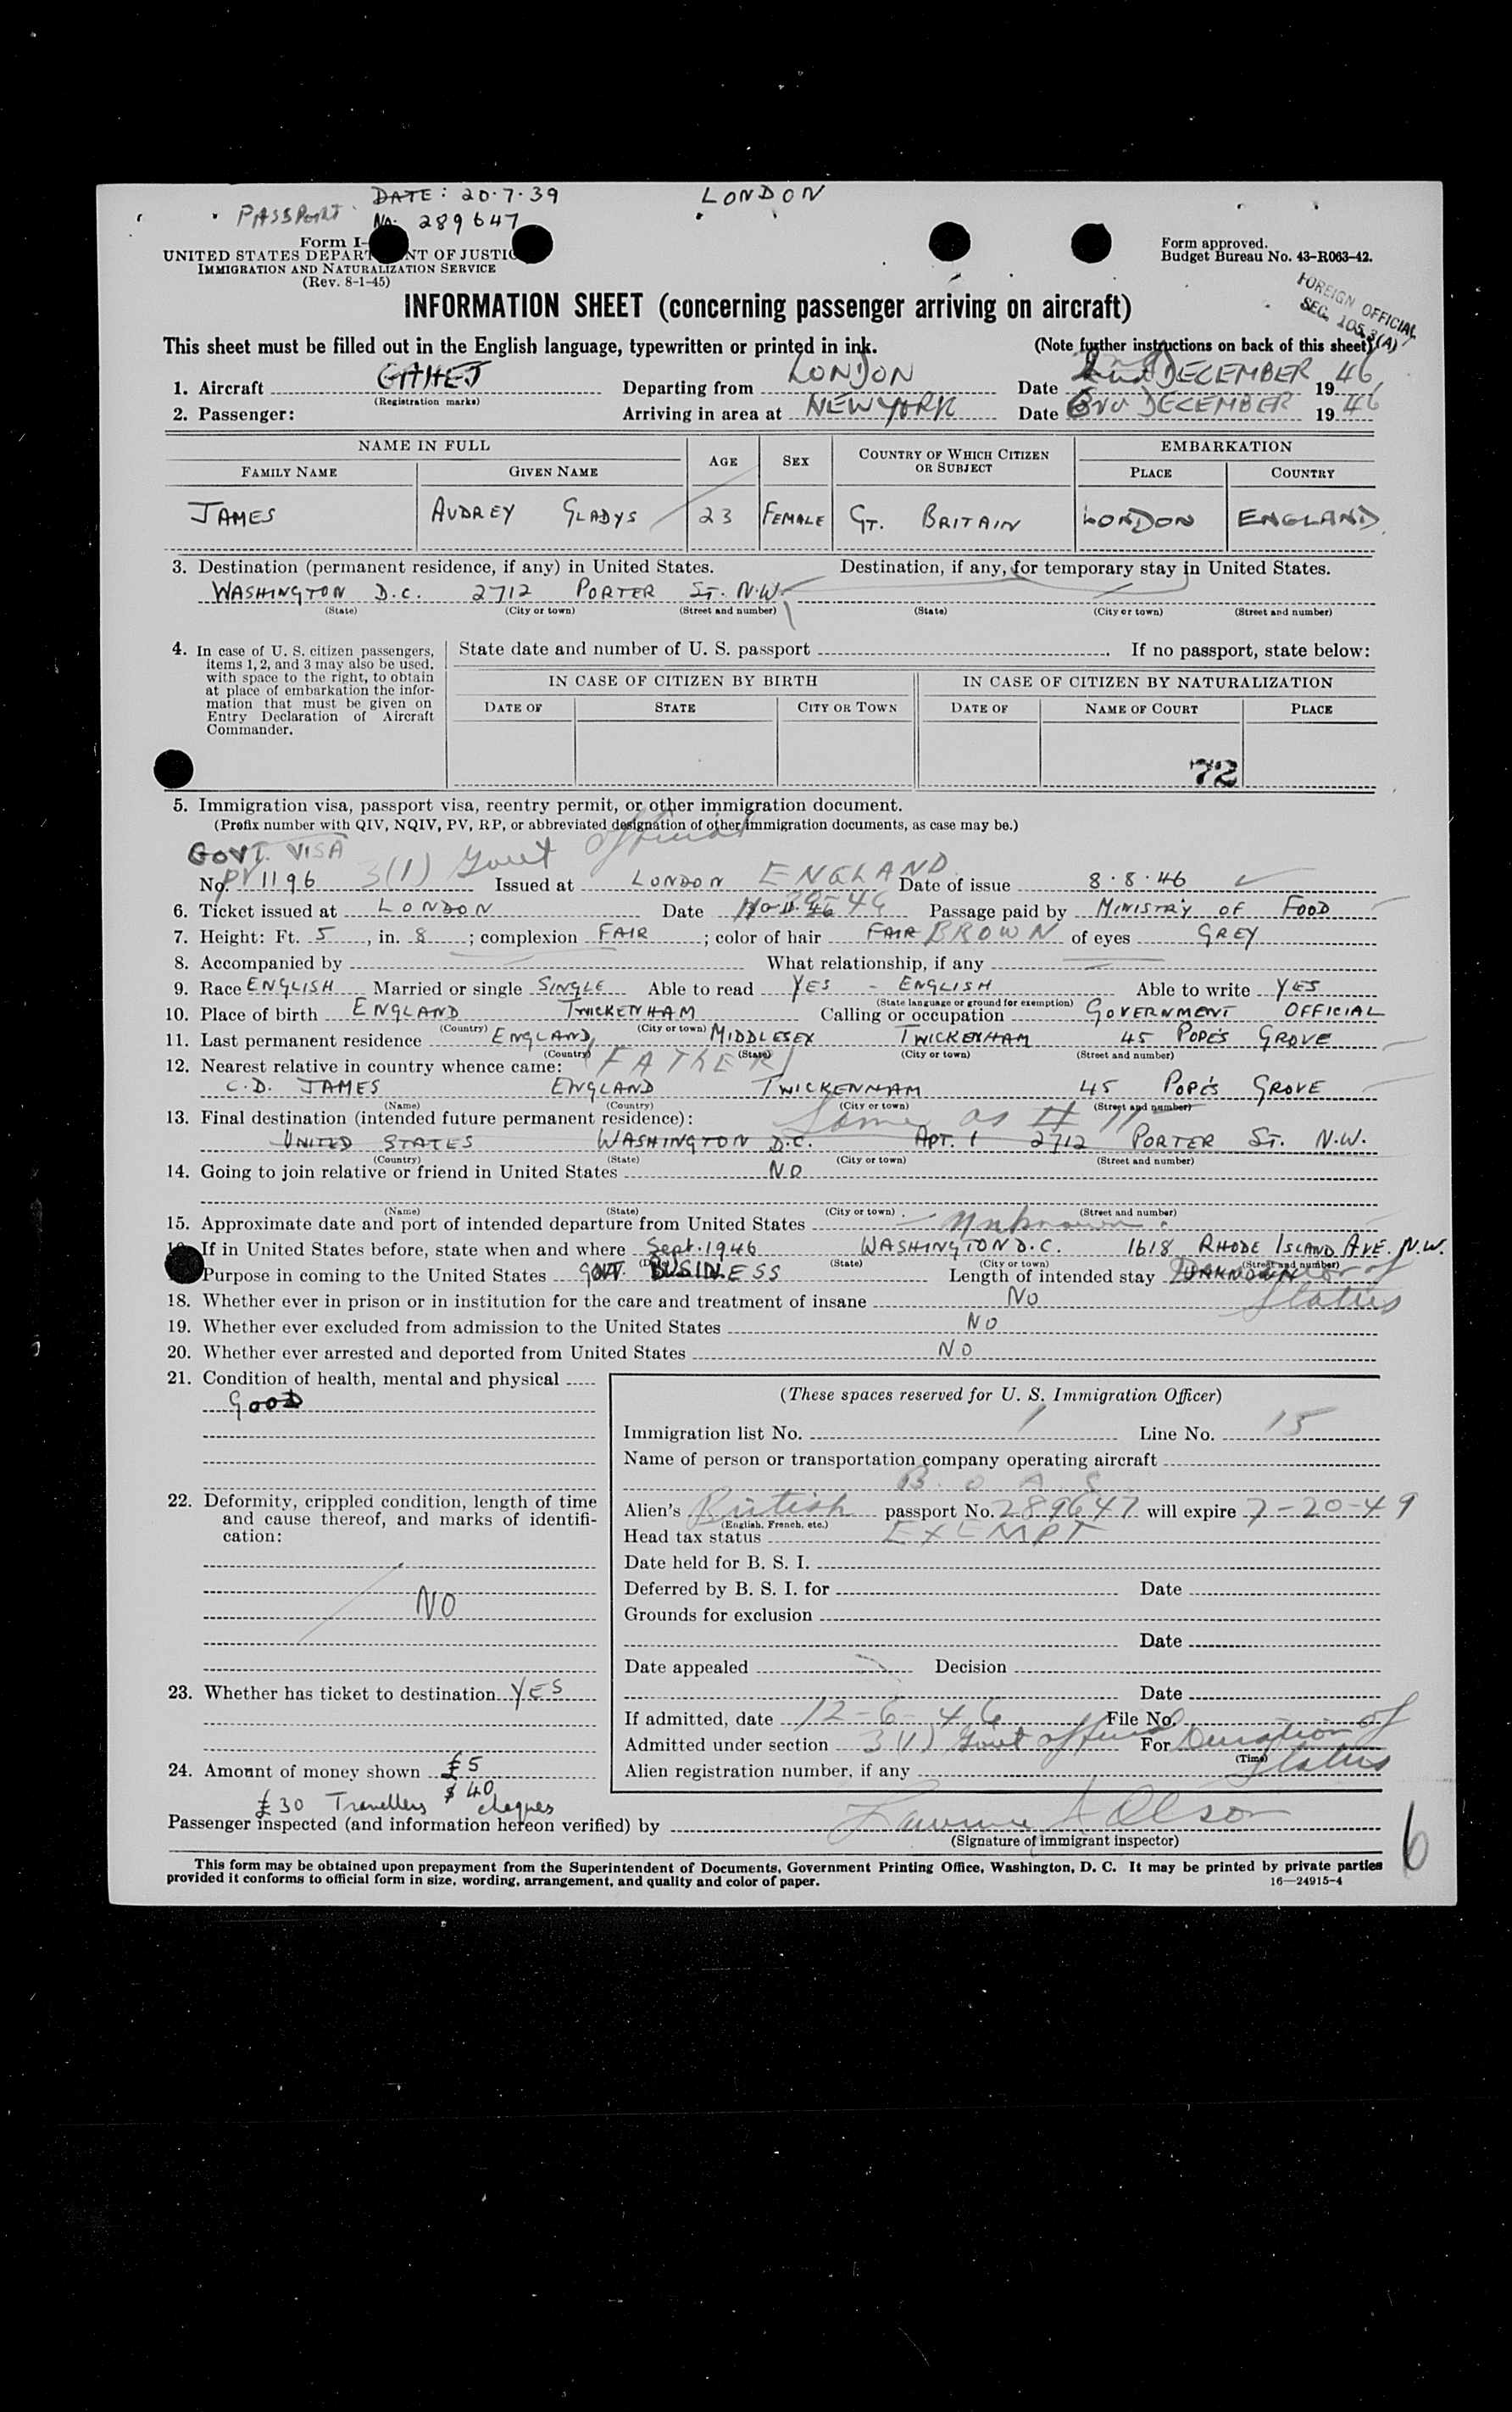 DATE: 20·7·39 LONDON
PASSPORT No. 289647
Form I-
UNITED STATES DEPART NT OF JUSTIC
IMMIGRATION AND NATURALIZATION SERVICE
(Rev. 8-1-45)
Form approved.
Budget Bureau No. 43-R063-42.
FOREIGN OFFICIAL
SEC. 105.3(A)
INFORMATION SHEET (concerning passenger arriving on aircraft)
This sheet must be filled out in the English language, typewritten or printed in ink. (Note further instructions on back of this sheet)
1. Aircraft Departing from LONDON Date DECEMBER 1946
(Registration marks)
2. Passenger: Arriving in area at NEW YORK Date DECEMBER 1946
NAME IN FULL AGE SEX COUNTRY OF WHICH CITIZEN OR SUBJECT EMBARKATION
FAMILY NAME GIVEN NAME PLACE COUNTRY
JAMES AUDREY GLADYS 23 FEMALE GT. BRITAIN LONDON ENGLAND
3. Destination (permanent residence, if any) in United States. Destination, if any, for temporary stay in United States.
WASHINGTON D.C. 2712 PORTER ST. N.W.
(State) (City or town) (Street and number) (State) (City or town) (Street and number)
4. In case of U. S. citizen passengers, items 1, 2, and 3 may also be used, with space to the right, to obtain at place of embarkation the information that must be given on Entry Declaration of Aircraft Commander.
State date and number of U. S. passport . If no passport, state below:
IN CASE OF CITIZEN BY BIRTH IN CASE OF CITIZEN BY NATURALIZATION
DATE OF STATE CITY OR TOWN DATE OF NAME OF COURT PLACE
72
5. Immigration visa, passport visa, reentry permit, or other immigration document.
(Prefix number with QIV, NQIV, PV, RP, or abbreviated designation of other immigration documents, as case may be.)
GOVT. VISA 3(1) Govt official
No. PV 1196 Issued at LONDON ENGLAND Date of issue 8·8·46
6. Ticket issued at LONDON Date Passage paid by MINISTRY OF FOOD
7. Height: Ft. 5, in. 8; complexion FAIR; color of hair FAIR BROWN of eyes GREY
8. Accompanied by What relationship, if any
9. Race ENGLISH Married or single SINGLE Able to read YES - ENGLISH Able to write YES
(State language or ground for exemption)
10. Place of birth ENGLAND TWICKENHAM Calling or occupation GOVERNMENT OFFICIAL
(Country) (City or town)
11. Last permanent residence ENGLAND, MIDDLESEX TWICKENHAM 45 POPE'S GROVE
(Country) (State) (City or town) (Street and number)
12. Nearest relative in country whence came: (FATHER)
C.D. JAMES ENGLAND TWICKENHAM 45 POPE'S GROVE
(Name) (Country) (City or town) (Street and number)
13. Final destination (intended future permanent residence): Same as # 11
UNITED STATES WASHINGTON D.C. APT. 1 2712 PORTER ST. N.W.
(Country) (State) (City or town) (Street and number)
14. Going to join relative or friend in United States NO
(Name) (State) (City or town) (Street and number)
15. Approximate date and port of intended departure from United States Unknown.
If in United States before, state when and where Sept. 1946 WASHINGTON D.C. 1618 RHODE ISLAND AVE. N.W.
(State) (City or town) (Street and number)
Purpose in coming to the United States GOVT. BUSINESS Length of intended stay UNKNOWN status
18. Whether ever in prison or in institution for the care and treatment of insane NO
19. Whether ever excluded from admission to the United States NO
20. Whether ever arrested and deported from United States NO
21. Condition of health, mental and physical
GOOD
22. Deformity, crippled condition, length of time and cause thereof, and marks of identification:
NO
23. Whether has ticket to destination YES
24. Amount of money shown £5
$40
£30 Travellers cheques
(These spaces reserved for U. S. Immigration Officer)
Immigration list No. 1 Line No. 15
Name of person or transportation company operating aircraft
B.O.A.C.
Alien's British passport No. 289647 will expire 7-20-49
(English, French, etc.)
Head tax status EXEMPT
Date held for B. S. I.
Deferred by B. S. I. for Date
Grounds for exclusion
Date
Date appealed Decision
Date
If admitted, date 12-6-46 File No.
Admitted under section 3(1) Govt official For Duration of status
(Time)
Alien registration number, if any
Passenger inspected (and information hereon verified) by Olson
(Signature of immigrant inspector)
6
This form may be obtained upon prepayment from the Superintendent of Documents, Government Printing Office, Washington, D. C. It may be printed by private parties
provided it conforms to official form in size, wording, arrangement, and quality and color of paper. 16—24915-4